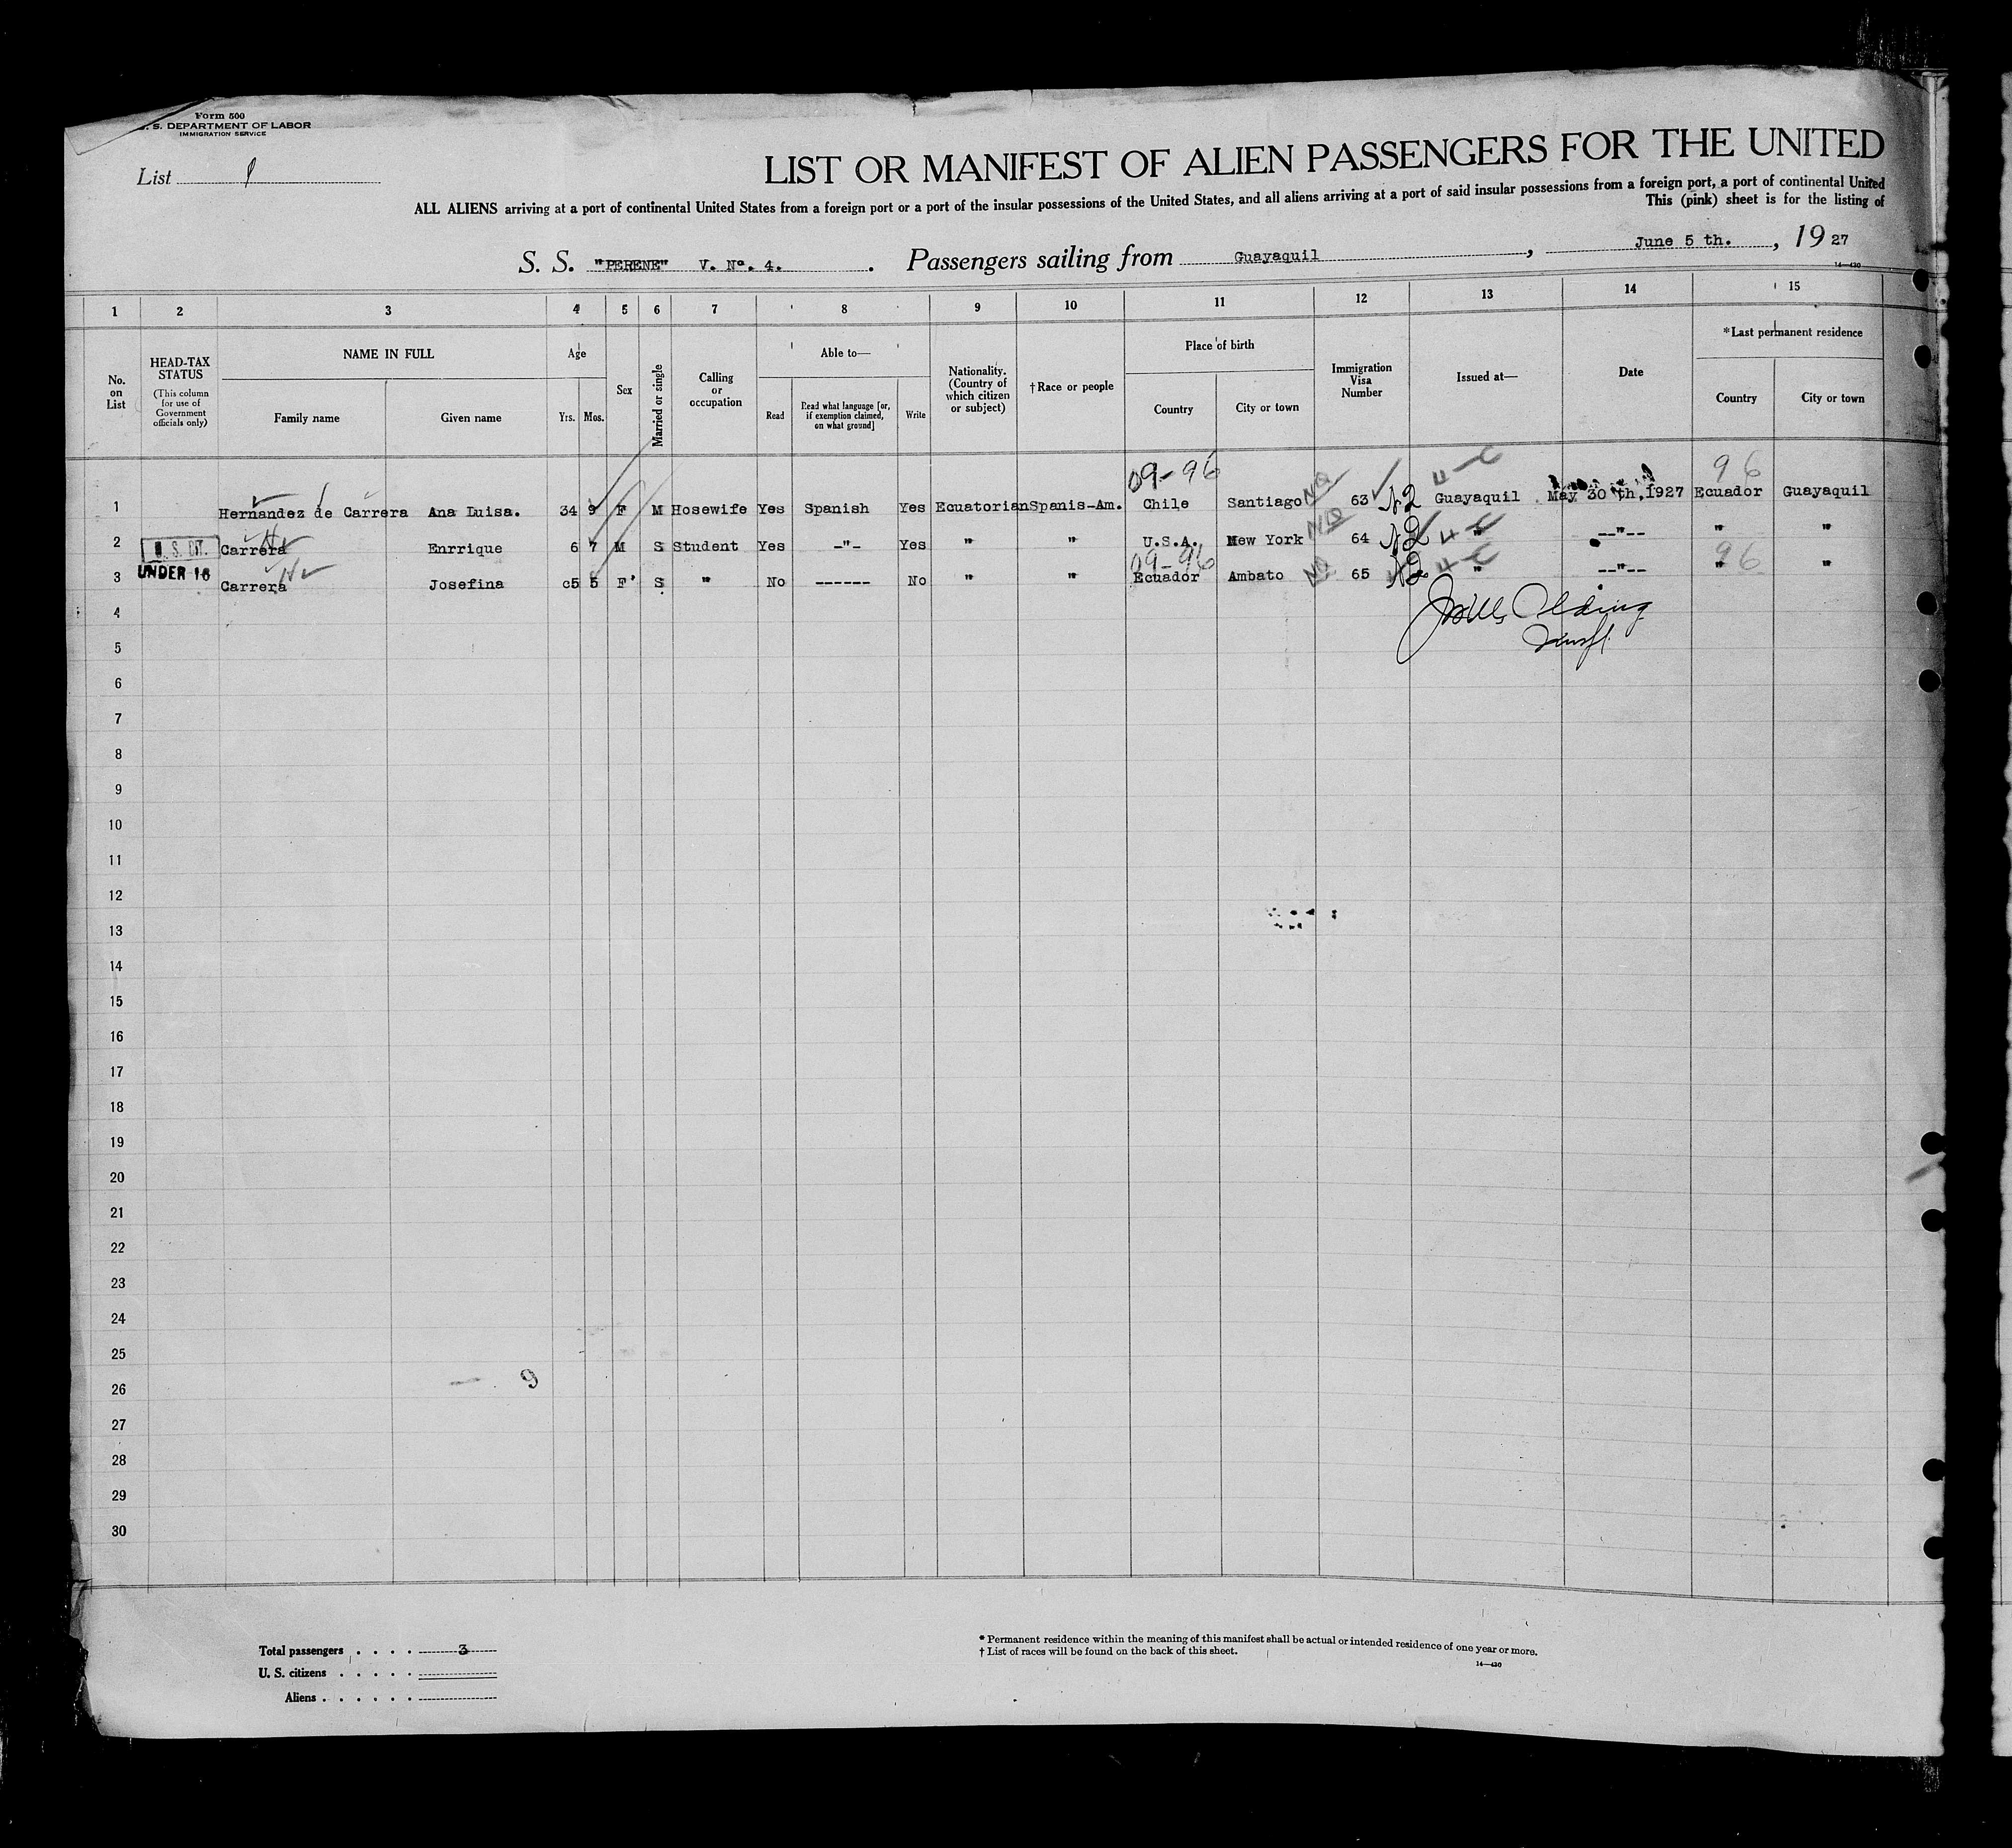 Form 500
U. S. DEPARTMENT OF LABOR
IMMIGRATION SERVICE
List
LIST OR MANIFEST OF ALIEN PASSENGERS FOR THE UNITED
ALL ALIENS arriving at a port of continental United States from a foreign port or a port of the insular possessions of the United States, and all aliens arriving at a port of said insular possessions from a foreign port, a port of continental United
This (pink) sheet is for the listing of
S. S. "PERENE" V. Nº. 4. Passengers sailing from Guayaquil, June 5 th., 19 27
14—430
1 2 3 4 5 6 7 8 9 10 11 12 13 14 15
No. on List
HEAD-TAX STATUS
(This column for use of Government officials only)
NAME IN FULL
Family name Given name
Age
Yrs. Mos.
Sex
Married or single
Calling or occupation
Able to—
Read
Read what language [or, if exemption claimed, on what ground]
Write
Nationality. (Country of which citizen or subject)
†Race or people
Place of birth
Country City or town
Immigration Visa Number
Issued at—
Date
*Last permanent residence
Country City or town
09-96 96
1 Hernandez de Carrera Ana Luisa. 34 9 F M Hosewife Yes Spanish Yes Ecuatorian Spanis-Am. Chile Santiago NQ 63 Guayaquil May 30 th,1927 Ecuador Guayaquil
2 U. S. CIT. Carrera Enrrique 6 7 M S Student Yes -"- Yes " " U.S.A. New York NQ 64 " --"-- " "
09-96 96
3 UNDER 16 Carrera Josefina c5 5 F S " No ------ No " " Ecuador Ambato NQ 65 " --"-- " "
4
5
6
7
8
9
10
11
12
13
14
15
16
17
18
19
20
21
22
23
24
25
26 9
27
28
29
30
Total passengers . . . . 3
U. S. citizens . . . . .
Aliens . . . . . .
* Permanent residence within the meaning of this manifest shall be actual or intended residence of one year or more.
† List of races will be found on the back of this sheet.
14—430